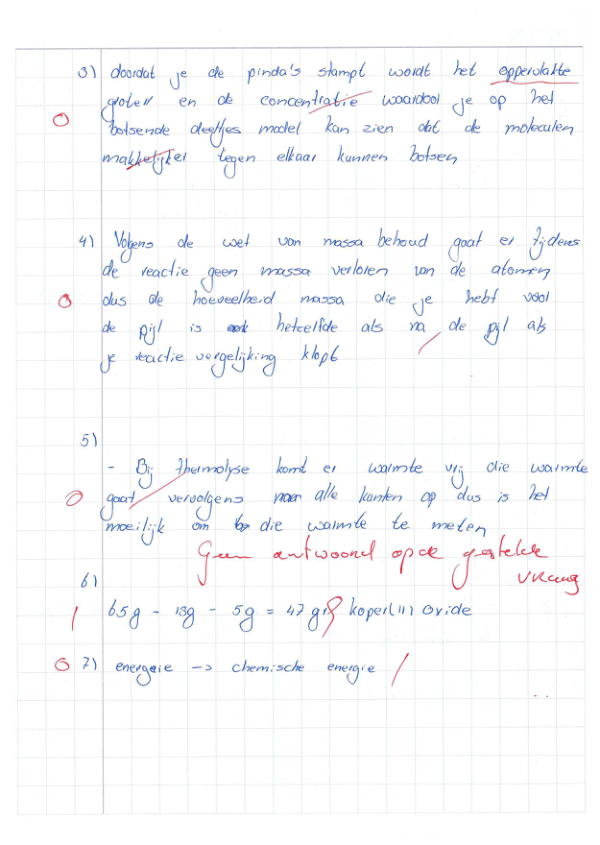 3) doordat je de pinda's stampt wordt het oppervlakte
groter en de concentratie waardoor je op het
0 botsende deeltjes model kan zien dat de moleculen
makkelijker tegen elkaar kunnen botsen
4) Volgens de wet van massa behoud gaat er tijdens
de reactie geen massa verloren van de atomen
0 dus de hoeveelheid massa die je hebt voor
de pijl is hetzelfde als na de pijl als
je reactie vergelijking klopt
5)
- Bij thermolyse komt er warmte vrij die warmte
0 gaat vervolgens naar alle kanten op dus is het
moeilijk om die warmte te meten
Geen antwoord op de gestelde
vraag
6)
1 65g - 13g - 5g = 47 gr koper(II) oxide
0 7) energeie -> chemische energie